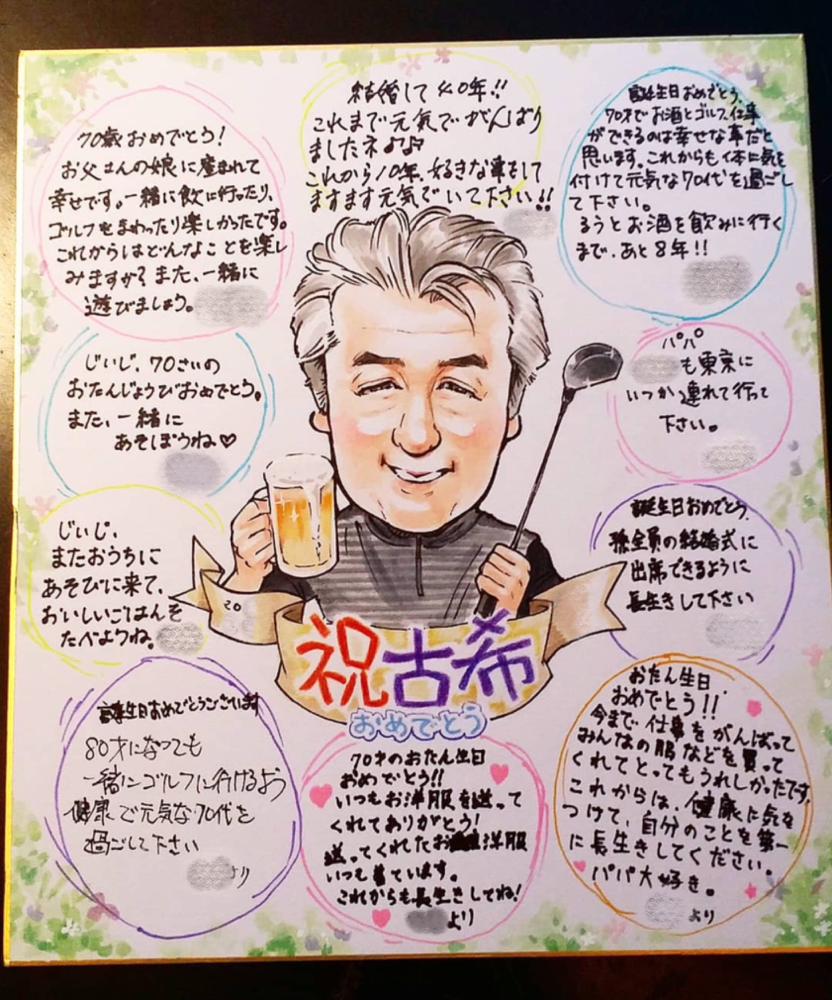 70歳おめでとう!
お父さんの娘に産まれて
幸せです。一緒に飲に行ったり、
ゴルフをまわったり楽しかったです。
これからはどんなことを楽し
みますか?また、一緒に
遊びましょう。
結婚して40年!!
これまで元気でがんばり
ましたネ♪♪
これから10年、好きな事をして
ますます元気でいて下さい!!
誕生日おめでとう。
70才でお酒とゴルフ、仕事
ができるのは幸せな事だと
思います。これからも体に気を
付けて元気な70代を過ごし
て下さい。
るうとお酒を飲みに行く
まで、あと8年!!
じいじ、70さいの
おたんじょうびおめでとう。
また、一緒に
あそぼうね♡
パパ
も東京に
いつか連れて行って
下さい。
じいじ、
またおうちに
あそびに来て、
おいしいごはんを
たべようね。
誕生日おめでとう。
孫全員の結婚式に
出席できるように
長生きして下さい
20
祝古希
おめでとう
誕生日おめでとうございます
80才になっても
一緒にゴルフに行けるよう
健康で元気な70代を
過ごして下さい
より
70才のおたん生日
おめでとう!!
いつもお洋服を送って
くれてありがとう!
送ってくれたお洋服
いつも着ています。
これからも長生きしてね!
より
おたん生日
おめでとう!!
今まで仕事をがんばって
みんなの服などを買って
くれてとってもうれしかったです。
これからは、健康に気を
つけて、自分のことを第一
に長生きしてください。
パパ大好き。
より